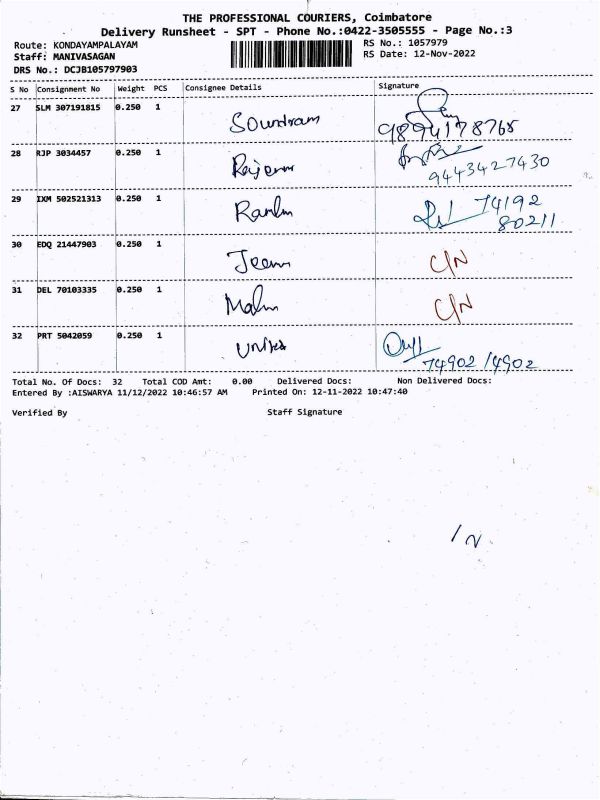 THE PROFESSIONAL COURIERS, Coimbatore
Delivery Runsheet - SPT - Phone No.:0422-3505555 - Page No.:3
Route: KONDAYAMPALAYAM
Staff: MANIVASAGAN
DRS No.: DCJB105797903
RS No.: 1057979
RS Date: 12-Nov-2022
S No Consignment No Weight PCS Consignee Details Signature
27 SLM 307191815 0.250 1 Soundram
9894178768
28 RJP 3034457 0.250 1
9443427430
29 IXM 502521313 0.250 1 74192
80211
30 EDQ 21447903 0.250 1 C/N
31 DEL 70103335 0.250 1 C/N
32 PRT 5042059 0.250 1
74902 14902
Total No. Of Docs: 32 Total COD Amt: 0.00 Delivered Docs: Non Delivered Docs:
Entered By :AISWARYA 11/12/2022 10:46:57 AM Printed On: 12-11-2022 10:47:40
Verified By Staff Signature